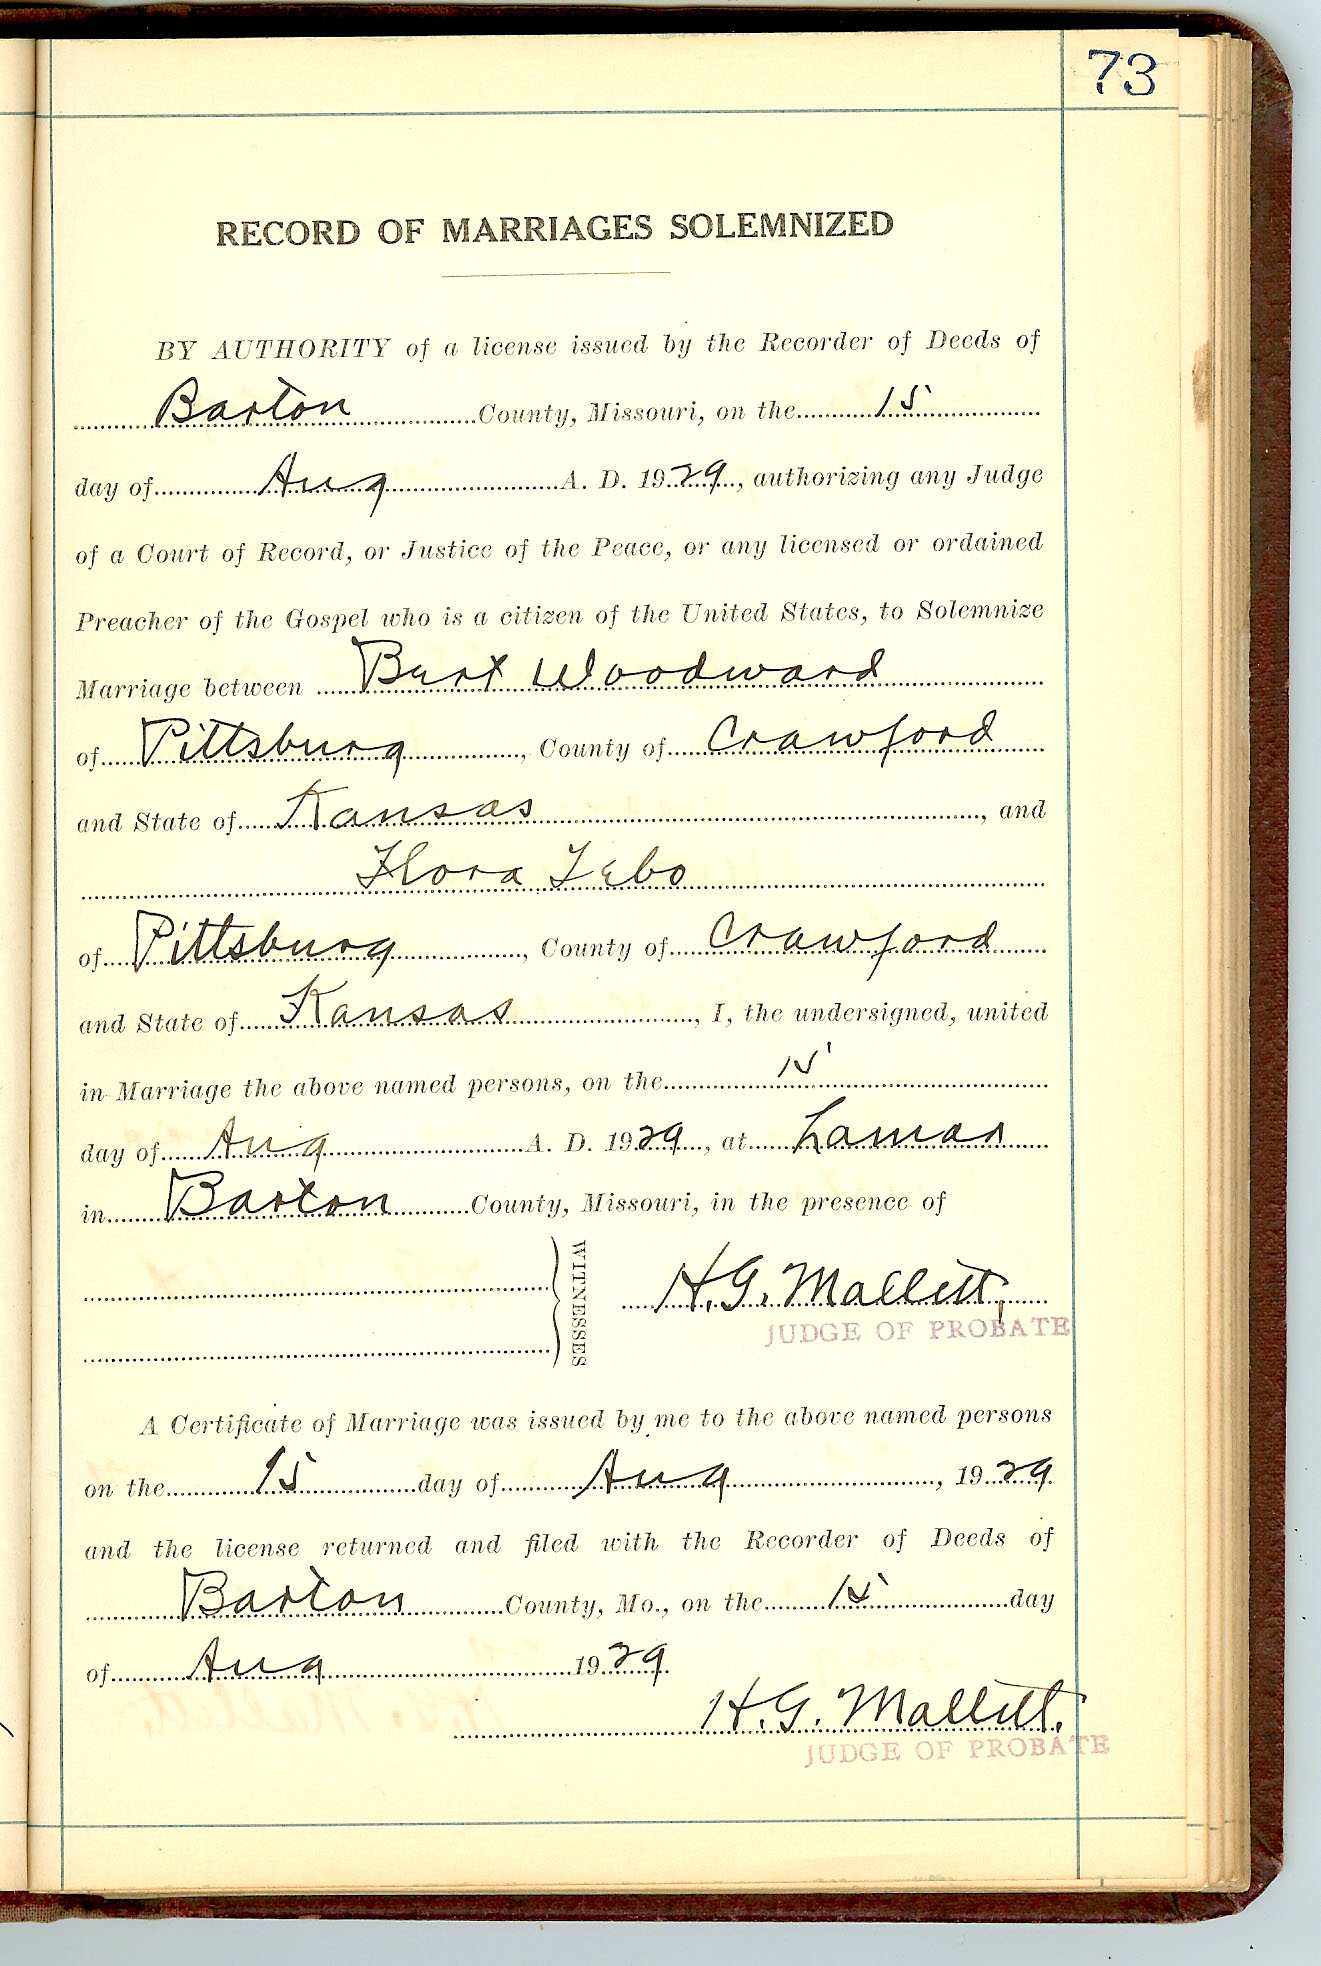 73
RECORD OF MARRIAGES SOLEMNIZED
BY AUTHORITY of a license issued by the Recorder of Deeds of
Barton County, Missouri, on the 15
day of Aug A. D. 1929, authorizing any Judge
of a Court of Record, or Justice of the Peace, or any licensed or ordained
Preacher of the Gospel who is a citizen of the United States, to Solemnize
Marriage between Burt Woodward
of Pittsburg, County of Crawford
and State of Kansas, and
Flora Tebo
of Pittsburg, County of Crawford
and State of Kansas, I, the undersigned, united
in Marriage the above named persons, on the 15
day of Aug A. D. 1929, at Lamar
in Barton County, Missouri, in the presence of
WITNESSES
H.G. Mallitt,
JUDGE OF PROBATE
A Certificate of Marriage was issued by me to the above named persons
on the 15 day of Aug, 1929
and the license returned and filed with the Recorder of Deeds of
Barton County, Mo., on the 15 day
of Aug 1929.
H.G. Mallitt.
JUDGE OF PROBATE